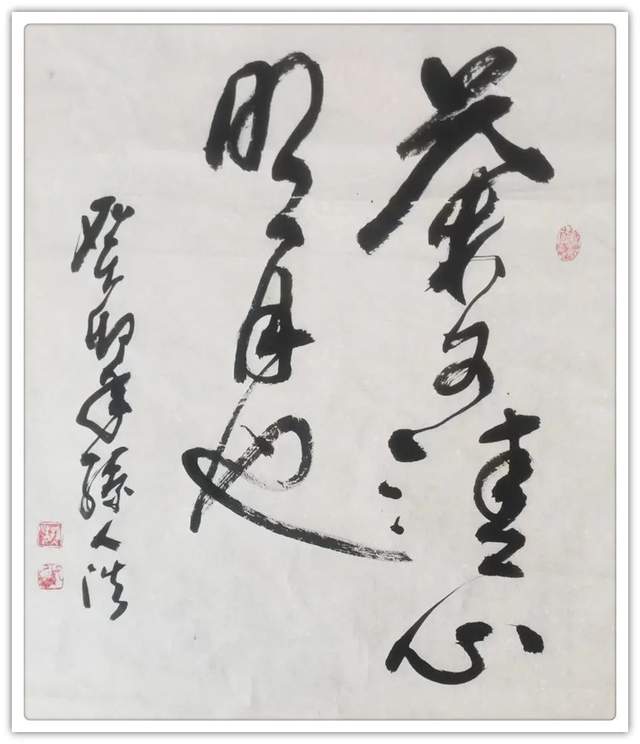 茶可清心
明月也
癸卯年孫人